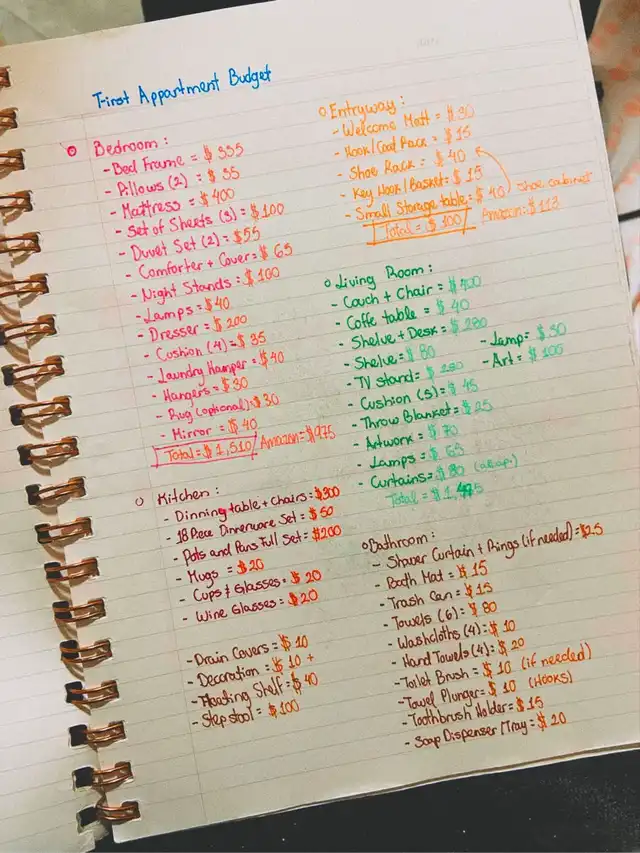 First Appartment Budget
Bedroom:
- Bed Frame = $ 335
- Pillows (2) = $ 35
- Mattress = $400
- Set of Sheets (3) = $100
- Duvet Set (2) = $55
- Comforter + Cover = $ 65
- Night Stands = $100
- Lamps = $40
- Dresser = $200
- Cushion (4) = $35
- Laundry Hamper = $40
- Hangers = $30
- Rug (optional) : $30
- Mirror = $ 40
Total = $1,510 Amazon = $975
Kitchen:
- Dinning table + Chairs = $300
- 18 Piece Dinnerware Set = $ 50
- Pots and Pans Full Set = $200
- Mugs = $20
- Cups & Glasses = $ 20
- Wine Glasses = $20
- Drain Covers = $ 10
- Decoration = $ 10 +
- Floating Shelf = $40
- Step stool = $100
Entryway:
- Welcome Matt = $30
- Hook/Coat Rack = $ 15
- Shoe Rack = $ 40
- Key Hook/Basket = $ 15
- Small Storage table = $ 40 shoe cabinet
Total = $ 100 Amazon: $113
Living Room:
- Couch + Chair = $400
- Coffe table = $ 40
- Shelve + Desk = $ 280
- Shelve = $ 80 - Lamp = $ 30
- TV stand = $ 180 - Art = $ 100
- Cushion (5) = $ 45
- Throw Blanket = $ 25
- Artwork = $ 70
- Lamps = $ 65
- Curtains = $ 80
Total = $ 1,
Bathroom:
- Shower Curtain + Rings (if needed) = $25
- Bath Mat = $ 15
- Trash Can = $ 15
- Towels (6) = $ 80
- Washcloths (4) = $ 10
- Hand Towels (4) = $ 20
- Toilet Brush = $ 10 (if needed)
- Towel Plunger = $ 10 (Hooks)
- Toothbrush Holder = $ 15
- Soap Dispenser/Tray = $ 20